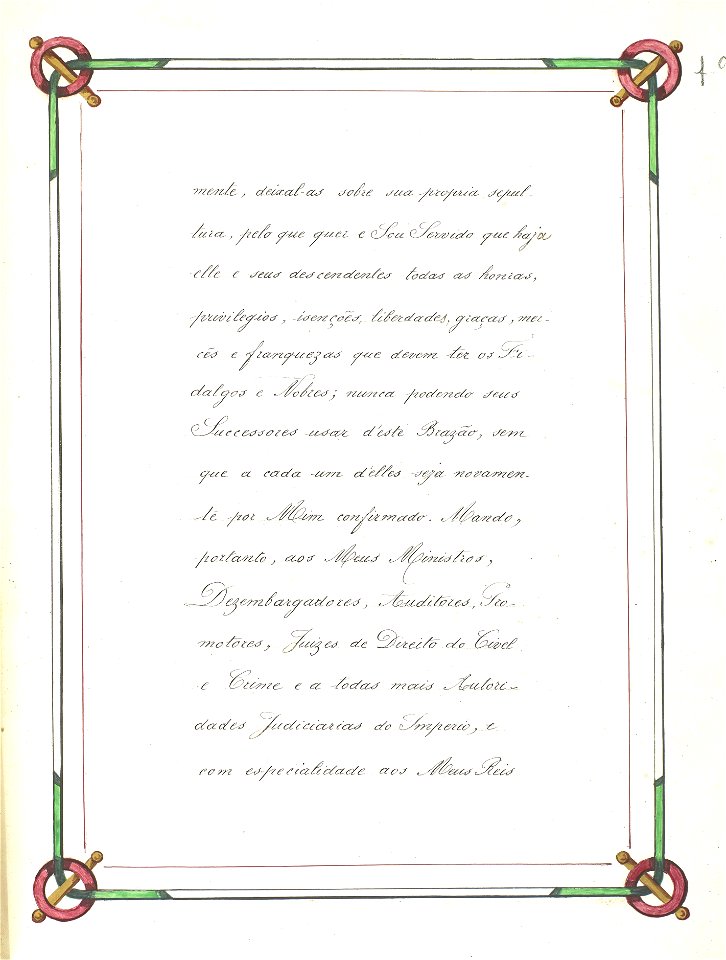 mente, deixal-as sobre sua propria sepul-
tura, pelo que quer e Sou Servido que haja
elle e seus descendentes todas as honras,
privilegios, isenções, liberdades, graças, mer-
cês e franquezas que devem ter os Fi-
dalgos e Nobres; nunca podendo seus
Successores usar d'este Brazão, sem
que a cada um d'elles seja novamen-
te por Mim confirmado. Mando,
portanto, aos Meus Ministros,
Dezembargadores, Auditores, Pro-
motores, Juizes de Direito do Civel
e Crime e a todas mais Autori-
dades Judiciarias do Imperio, e
com especialidade aos Meus Reis